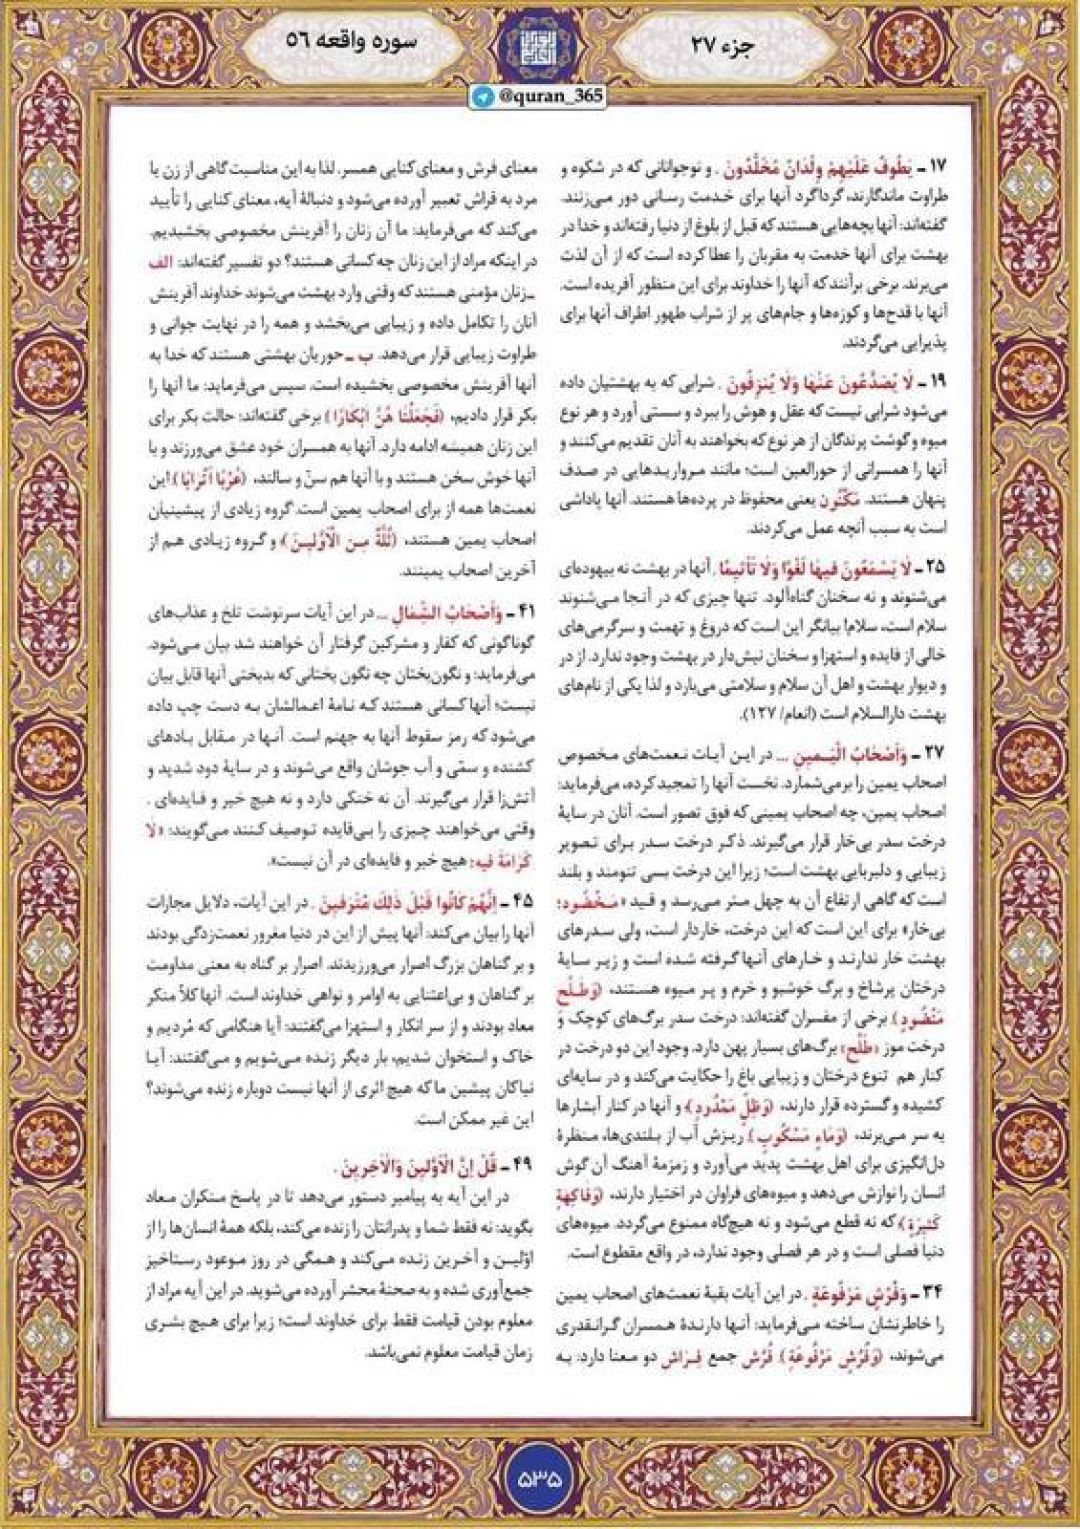 جزء ۲۷
سوره واقعه ۵۶
@quran_365
۱۷ ـ يَطُوفُ عَلَيْهِمْ وِلْدَانٌ مُخَلَّدُونَ . و نوجوانانی که در شکوه و
طراوت ماندگارند، گرداگرد آنها برای خدمت رسانی دور می‌زنند.
گفته‌اند: آنها بچه‌هایی هستند که قبل از بلوغ از دنیا رفته‌اند و خدا در
بهشت برای آنها خدمت به مقربان را عطا کرده است که از آن لذت
می‌برند. برخی برآنند که آنها را خداوند برای این منظور آفریده است.
آنها با قدح‌ها و کوزه‌ها و جام‌های پر از شراب طهور اطراف آنها برای
پذیرایی می‌گردند.
۱۹ ـ لَا يُصَدَّعُونَ عَنْهَا وَلَا يُنْزِفُونَ . شرابی که به بهشتیان داده
می‌شود شرابی نیست که عقل و هوش را ببرد و سستی آورد و هر نوع
میوه و گوشت پرندگان از هر نوع که بخواهند به آنان تقدیم می‌کنند و
آنها را همسرانی از حورالعین است؛ مانند مرواریدهایی در صدف
پنهان هستند. مَكْنُون یعنی محفوظ در پرده‌ها هستند. آنها پاداشی
است به سبب آنچه عمل می‌کردند.
۲۵ ـ لَا يَسْمَعُونَ فِيهَا لَغْوًا وَلَا تَأْثِيمًا . آنها در بهشت نه بیهوده‌ای
می‌شنوند و نه سخنان گناه‌آلود. تنها چیزی که در آنجا می‌شنوند
سلام است، سلام! بیانگر این است که دروغ و تهمت و سرگرمی‌های
خالی از فایده و استهزا و سخنان نیش‌دار در بهشت وجود ندارد. از در
و دیوار بهشت و اهل آن سلام و سلامتی می‌بارد و لذا یکی از نام‌های
بهشت دارالسلام است (انعام/ ۱۲۷).
۲۷ ـ وَأَصْحَابُ الْيَمِينِ ... در این آیات نعمت‌های مخصوص
اصحاب یمین را برمی‌شمارد. نخست آنها را تمجید کرده، می‌فرماید:
اصحاب یمین، چه اصحاب یمینی که فوق تصور است. آنان در سایۀ
درخت سدر بی‌خار قرار می‌گیرند. ذکر درخت سدر برای تصویر
زیبایی و دلربایی بهشت است؛ زیرا این درخت بسی تنومند و بلند
است که گاهی ارتفاع آن به چهل متر می‌رسد و قید «مَخْضُود؛
بی‌خار» برای این است که این درخت، خاردار است، ولی سدرهای
بهشت خار ندارند و خارهای آنها گرفته شده است و زیر سایۀ
درختان پرشاخ و برگ خوشبو و خرم و پر میوه هستند، ﴿وَطَلْحٍ
مَنْضُودٍ﴾. برخی از مفسران گفته‌اند: درخت سدر برگ‌های کوچک و
درخت موز «طَلْح» برگ‌های بسیار پهن دارد. وجود این دو درخت در
کنار هم تنوع درختان و زیبایی باغ را حکایت می‌کند و در سایه‌ای
کشیده و گسترده قرار دارند، ﴿وَظِلٍّ مَمْدُودٍ﴾ و آنها در کنار آبشارها
به سر می‌برند، ﴿وَمَاءٍ مَسْكُوبٍ﴾. ریزش آب از بلندی‌ها، منظرۀ
دل‌انگیزی برای اهل بهشت پدید می‌آورد و زمزمۀ آهنگ آن گوش
انسان را نوازش می‌دهد و میوه‌های فراوان در اختیار دارند، ﴿وَفَاكِهَةٍ
كَثِيرَةٍ﴾ که نه قطع می‌شود و نه هیچ‌گاه ممنوع می‌گردد. میوه‌های
دنیا فصلی است و در هر فصلی وجود ندارد، در واقع مقطوع است.
۳۴ ـ وَفُرُشٍ مَرْفُوعَةٍ . در این آیات بقیۀ نعمت‌های اصحاب یمین
را خاطرنشان ساخته می‌فرماید: آنها دارندۀ همسران گرانقدری
می‌شوند، ﴿وَفُرُشٍ مَرْفُوعَةٍ﴾. فُرُش جمع فِرَاش دو معنا دارد: به
معنای فرش و معنای کنایی همسر. لذا به این مناسبت گاهی از زن یا
مرد به فراش تعبیر آورده می‌شود و دنبالۀ آیه، معنای کنایی را تأیید
می‌کند که می‌فرماید: ما آن زنان را آفرینش مخصوصی بخشیدیم.
در اینکه مراد از این زنان چه کسانی هستند؟ دو تفسیر گفته‌اند: الف
ـ زنان مؤمنی هستند که وقتی وارد بهشت می‌شوند خداوند آفرینش
آنان را تکامل داده و زیبایی می‌بخشد و همه را در نهایت جوانی و
طراوت زیبایی قرار می‌دهد. ب ـ حوریان بهشتی هستند که خدا به
آنها آفرینش مخصوصی بخشیده است. سپس می‌فرماید: ما آنها را
بکر قرار دادیم، ﴿فَجَعَلْنَا هُنَّ أَبْكَارًا﴾ برخی گفته‌اند: حالت بکر برای
این زنان همیشه ادامه دارد. آنها به همسران خود عشق می‌ورزند و با
آنها خوش سخن هستند و با آنها هم سنّ و سالند، ﴿عُرُبًا أَتْرَابًا﴾ این
نعمت‌ها همه از برای اصحاب یمین است. گروه زیادی از پیشینیان
اصحاب یمین هستند، ﴿ثُلَّةٌ مِنَ الْأَوَّلِينَ﴾ و گروه زیادی هم از
آخرین اصحاب یمینند.
۴۱ ـ وَأَصْحَابُ الشِّمَالِ ... در این آیات سرنوشت تلخ و عذاب‌های
گوناگونی که کفار و مشرکین گرفتار آن خواهند شد بیان می‌شود.
می‌فرماید: و نگون‌بختان چه نگون بختانی که بدبختی آنها قابل بیان
نیست؛ آنها کسانی هستند که نامۀ اعمالشان به دست چپ داده
می‌شود که رمز سقوط آنها به جهنم است. آنها در مقابل بادهای
کشنده و سمّی و آب جوشان واقع می‌شوند و در سایۀ دود شدید و
آتش‌زا قرار می‌گیرند. آن نه خنکی دارد و نه هیچ خیر و فایده‌ای .
وقتی می‌خواهند چیزی را بی‌فایده توصیف کنند می‌گویند: «لَا
كَرَامَةَ فِيهِ: هیچ خیر و فایده‌ای در آن نیست».
۴۵ ـ إِنَّهُمْ كَانُوا قَبْلَ ذَلِكَ مُتْرَفِينَ . در این آیات، دلایل مجازات
آنها را بیان می‌کند: آنها پیش از این در دنیا مغرور نعمت‌زدگی بودند
و بر گناهان بزرگ اصرار می‌ورزیدند. اصرار بر گناه به معنی مداومت
بر گناهان و بی‌اعتنایی به اوامر و نواهی خداوند است. آنها کلاً منکر
معاد بودند و از سر انکار و استهزا می‌گفتند: آیا هنگامی که مُردیم و
خاک و استخوان شدیم، بار دیگر زنده می‌شویم و می‌گفتند: آیا
نیاکان پیشین ما که هیچ اثری از آنها نیست دوباره زنده می‌شوند؟
این غیر ممکن است.
۴۹ ـ قُلْ إِنَّ الْأَوَّلِينَ وَالْآخِرِينَ .
در این آیه به پیامبر دستور می‌دهد تا در پاسخ منکران معاد
بگوید: نه فقط شما و پدرانتان را زنده می‌کند، بلکه همۀ انسان‌ها را از
اوّلین و آخرین زنده می‌کند و همگی در روز موعود رستاخیز
جمع‌آوری شده و به صحنۀ محشر آورده می‌شوید. در این آیه مراد از
معلوم بودن قیامت فقط برای خداوند است؛ زیرا برای هیچ بشری
زمان قیامت معلوم نمی‌باشد.
۵۳۵